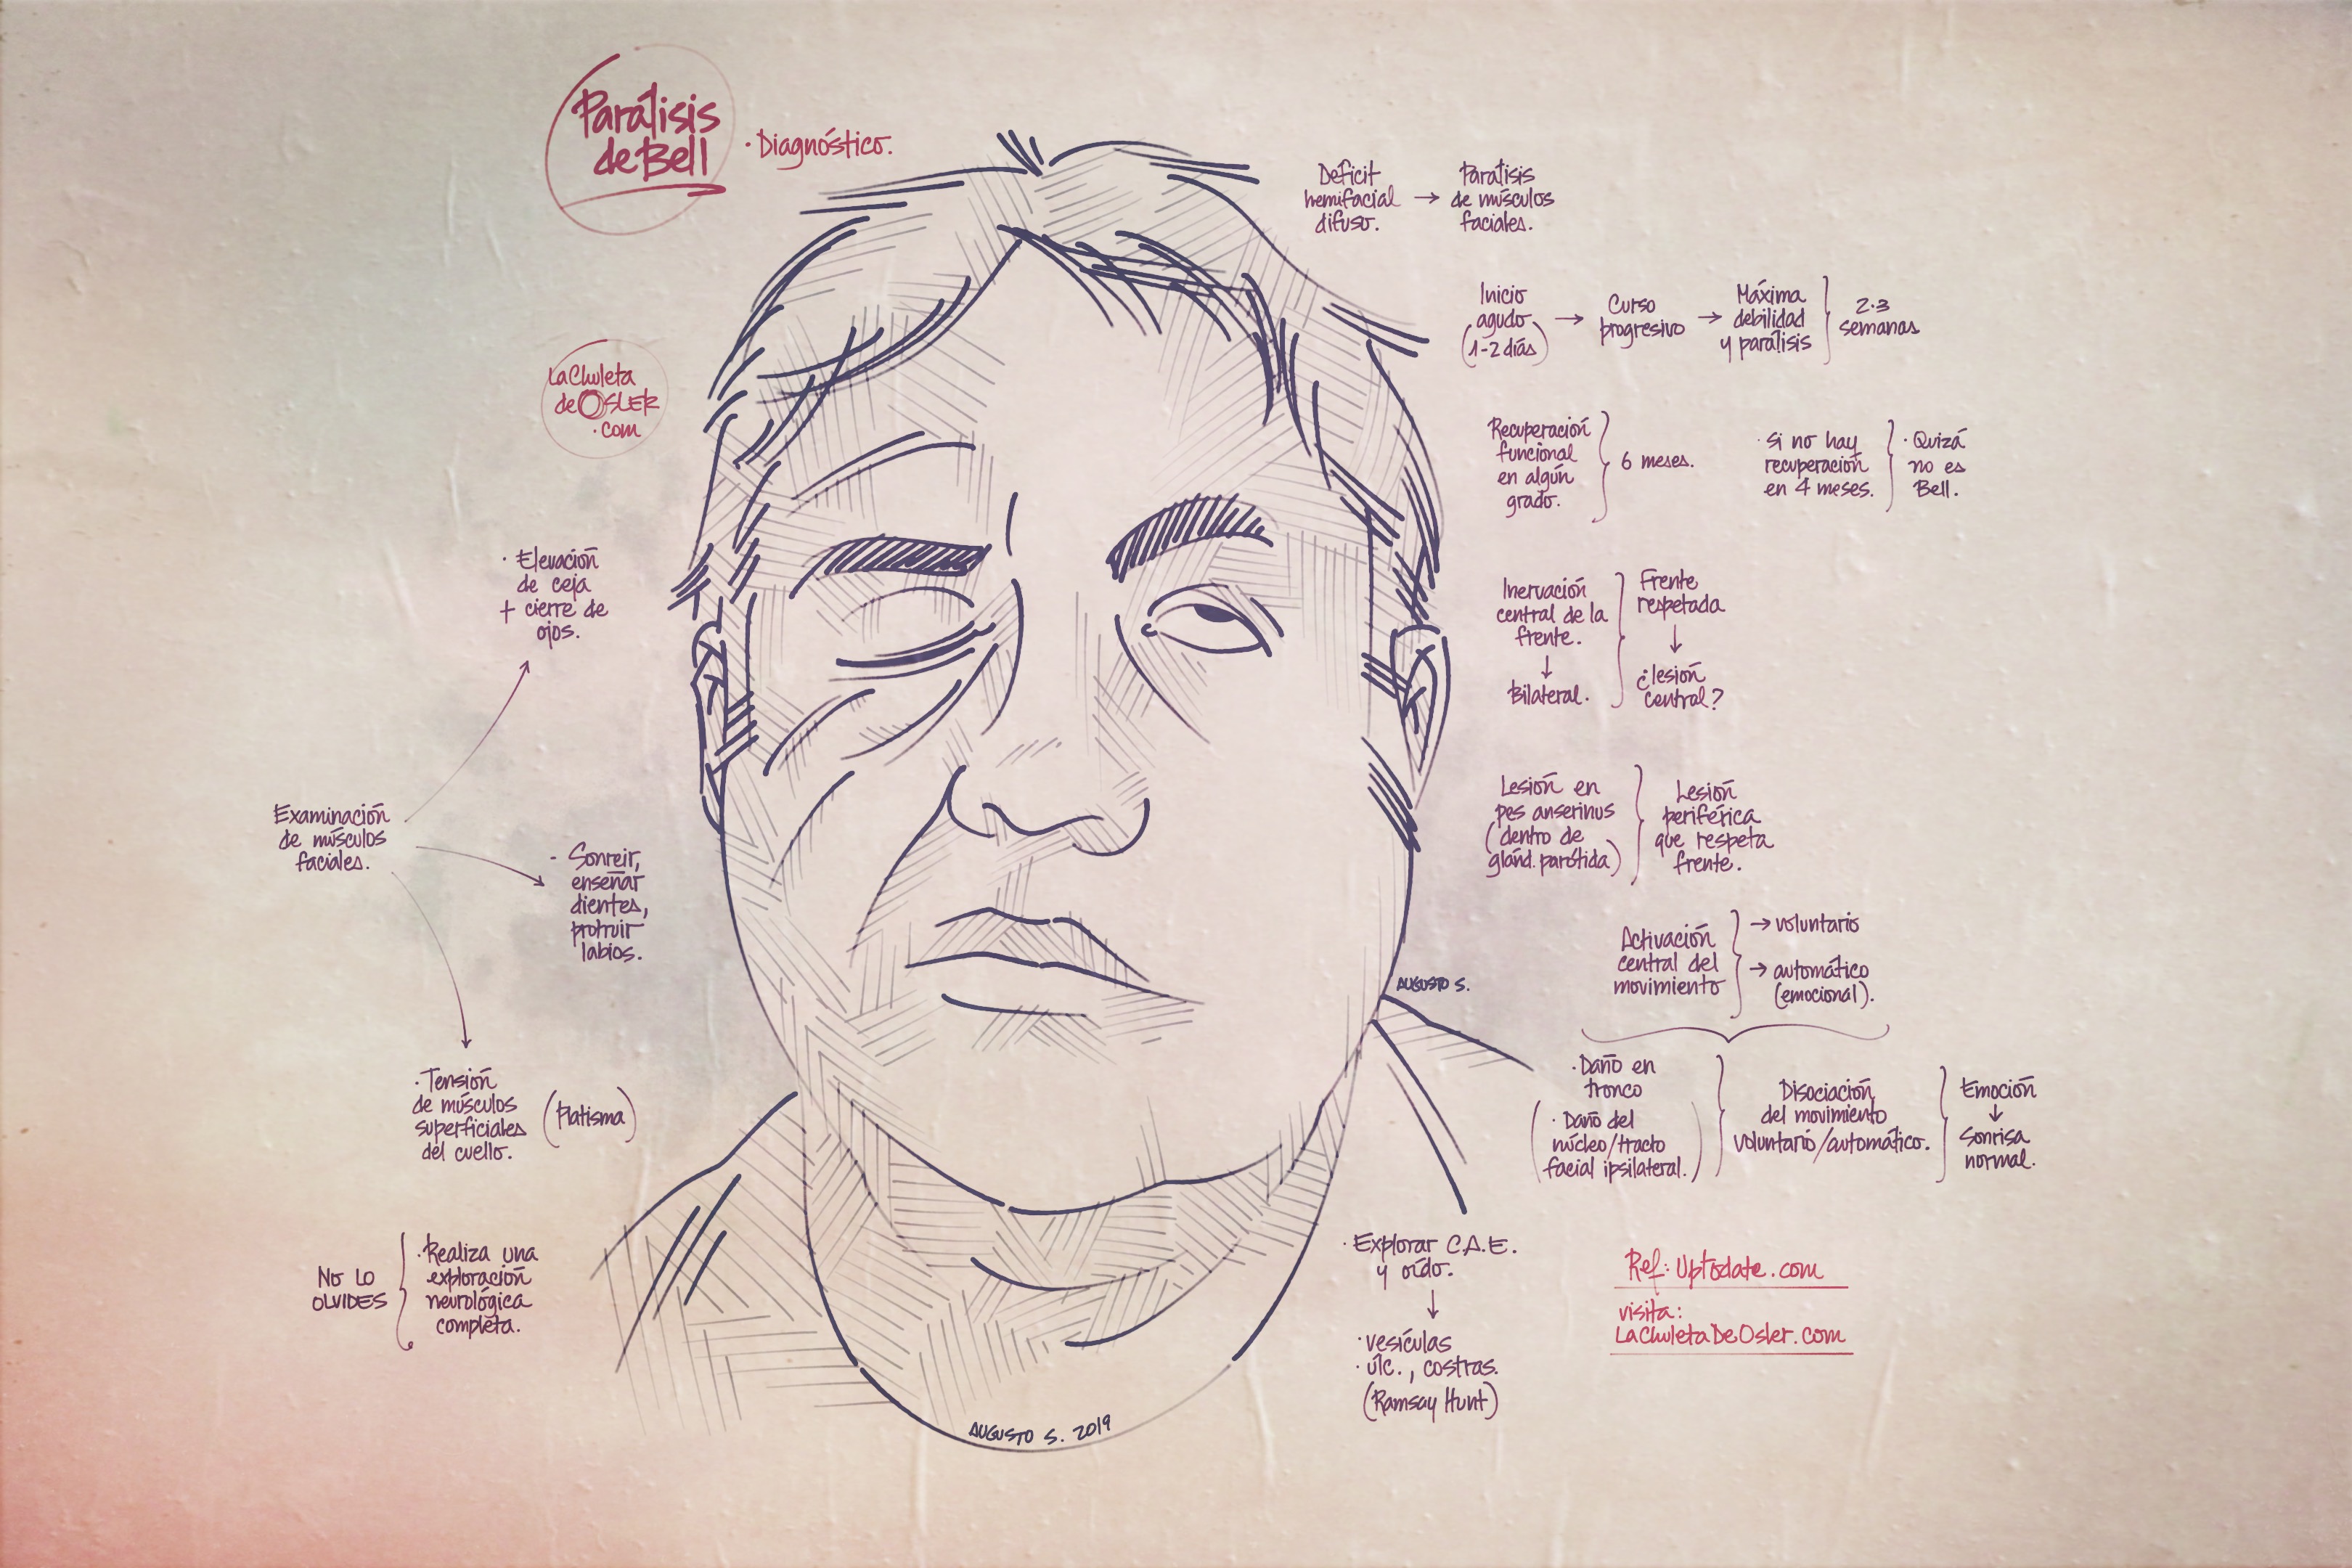 Parálisis
de Bell
· Diagnóstico.
La Chuleta
de OSLER
.com
Déficit
hemifacial
difuso.
→
Parálisis
de músculos
faciales.
Inicio
agudo
(1-2 días)
→
Curso
progresivo
→
Máxima
debilidad
y parálisis
2-3
semanas
Recuperación
funcional
en algún
grado.
6 meses.
· Si no hay
recuperación
en 4 meses.
· Quizá
no es
Bell.
Inervación
central de la
frente.
↓
Bilateral.
Frente
respetada
↓
¿lesión
central?
Lesión en
pes anserinus
(dentro de
glánd. parótida)
Lesión
periférica
que respeta
frente.
Activación
central del
movimiento
→ voluntario
→ automático
(emocional).
· Daño en
tronco
(· Daño del
núcleo/tracto
facial ipsilateral.)
Disociación
del movimiento
voluntario/automático.
Emoción
↓
Sonrisa
normal.
Examinación
de músculos
faciales.
· Elevación
de ceja
+ cierre de
ojos.
- Sonreir,
enseñar
dientes,
protruir
labios.
· Tensión
de músculos
superficiales
del cuello.
(Platisma)
NO LO
OLVIDES
· Realiza una
exploración
neurológica
completa.
· Explorar C.A.E.
y oído.
↓
· vesículas
· úlc., costras.
(Ramsay Hunt)
Ref: Uptodate.com
visita:
LaChuletaDeOsler.com
AUGUSTO S.
AUGUSTO S. 2019